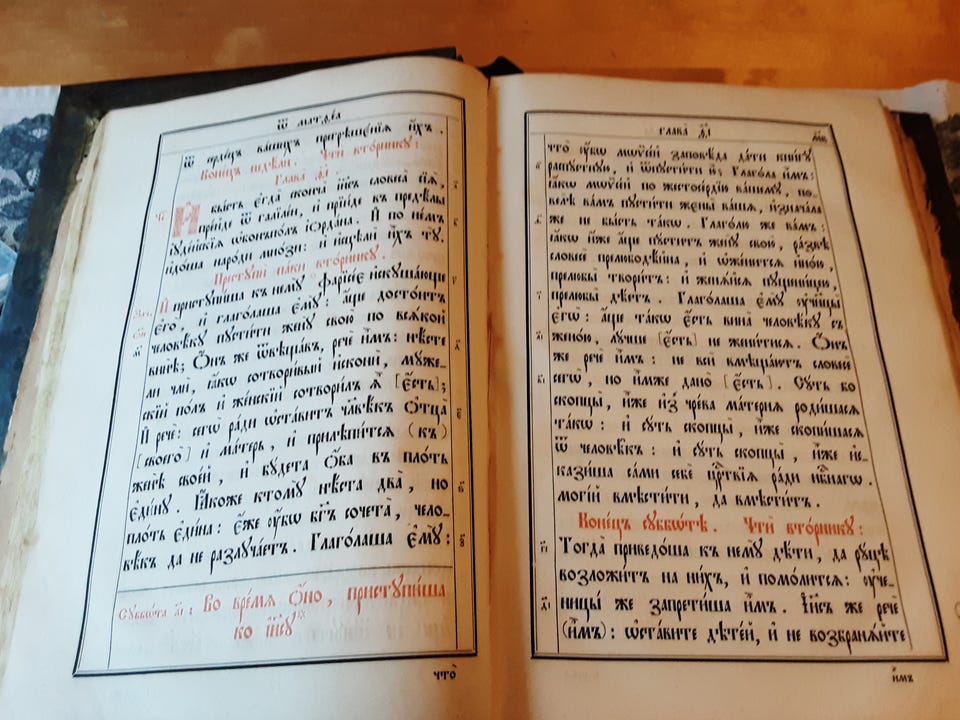 ѿ матѳеа
ѿ сердецъ вашихъ прегрѣшенїѧ и҆́хъ.
Конецъ недѣли. Чти вто́рникꙋ:
Глава̀ ѳ҃і
И҆ бы́сть є҆гда̀ сконча̀ і҆и҃съ словеса̀ сїѧ̑,
прїи́де ѿ галїле́и, и҆ прїи́де въ предѣ́лы
і҆ꙋдє́йскїѧ ѡ҆б̾ѡнпо́лъ і҆ѻрда́на. И҆ по не́мъ
и҆до́ша наро́ди мно́зи: и҆ и҆сцѣлѝ и҆́хъ тꙋ̀.
Пристꙋпѝ па́ки вто́рникꙋ.
И҆ пристꙋпи́ша къ немꙋ̀ фарїсе́є и҆скꙋша́юще
є҆го̀, и҆ глаго́лаша є҆мꙋ̀: а҆́ще досто́итъ
человѣ́кꙋ пꙋсти́ти женꙋ̀ свою̀ по всѧ́кой
винѣ̀; Ѻ҆́нъ же ѿвѣща́въ, речѐ и҆̀мъ: нѣ́сте
ли члѝ, ꙗ҆́кѡ сотвори́вый и҆сконѝ, мꙋ́же-
скїй по́лъ и҆ же́нскїй сотвори́лъ ѧ҆̀ [є҆́сть];
И҆ речѐ: сегѡ̀ ра́ди ѡ҆ста́витъ чл҃вѣ́къ ѻ҆тца̀
[своего̀] и҆ ма́терь, и҆ прилѣпи́тсѧ (къ)
женѣ̀ свое́й, и҆ бꙋ́дета ѻ҆́ба въ пло́ть
є҆ди́нꙋ. Ꙗ҆́коже ктомꙋ̀ нѣ́ста два̀, но
пло́ть є҆ди́на: є҆́же ᲂу҆̀бѡ бг҃ъ сочета̀, чело-
вѣ́къ да не разлꙋча́етъ. Глаго́лаша є҆мꙋ̀:
Сꙋббѡ́та а҃і: Во вре́мѧ ѻ҆́но, пристꙋпи́ша
ко і҆и҃сꙋ
что̀
глава̀ ѳ҃і
м҃в
что̀ ᲂу҆́бѡ мѡѷсе́й заповѣ́да да́ти кни́гꙋ
распꙋ́стнꙋю, и҆ ѿпꙋсти́ти ю҆̀; Глаго́ла и҆̀мъ:
ꙗ҆́кѡ мѡѷсе́й по жестосе́рдїю ва́шемꙋ, по-
велѣ̀ ва́мъ пꙋсти́ти жєны̀ ва́шѧ, и҆знача́ла
же не бы́сть та́кѡ. Глаго́лю же ва́мъ:
ꙗ҆́кѡ и҆́же а҆́ще пꙋ́ститъ женꙋ̀ свою̀, ра́звѣ
словесѐ прелюбодѣ́йна, и҆ ѡ҆же́нитсѧ и҆но́ю,
прелюбы̀ твори́тъ: и҆ женѧ́йсѧ пꙋщени́цею,
прелюбы̀ дѣ́етъ. Глаго́лаша є҆мꙋ̀ ᲂу҆чн҃цы̀
є҆гѡ̀: а҆́ще та́кѡ є҆́сть вина̀ человѣ́кꙋ съ
жено́ю, лꙋ́чше [є҆́сть] не жени́тисѧ. Ѻ҆́нъ
же речѐ и҆̀мъ: не всѝ вмѣща́ютъ словесѐ
сегѡ̀, но и҆̀мже дано̀ [є҆́сть]. Сꙋ́ть бо
скопцы̀, и҆́же и҆з̾ чре́ва ма́тернѧ роди́шасѧ
та́кѡ: и҆ сꙋ́ть скопцы̀, и҆́же скопи́шасѧ
ѿ человѣ̑къ: и҆ сꙋ́ть скопцы̀, и҆́же и҆с-
кази́ша са́ми себѐ црⷭ҇твїѧ ра́ди нбⷭ҇нагѡ.
могі́й вмѣсти́ти, да вмѣсти́тъ.
Коне́цъ сꙋббѡ́тѣ. Чтѝ вто́рникꙋ:
Тогда̀ приведо́ша къ немꙋ̀ дѣ́ти, да рꙋ́цѣ
возложи́тъ на ни́хъ, и҆ помо́литсѧ: ᲂу҆че-
ницы́ же запрети́ша и҆̀мъ. І҆и҃съ же речѐ
(и҆̀мъ): ѡ҆ста́вите дѣте́й, и҆ не возбранѧ́йте
и҆̀мъ